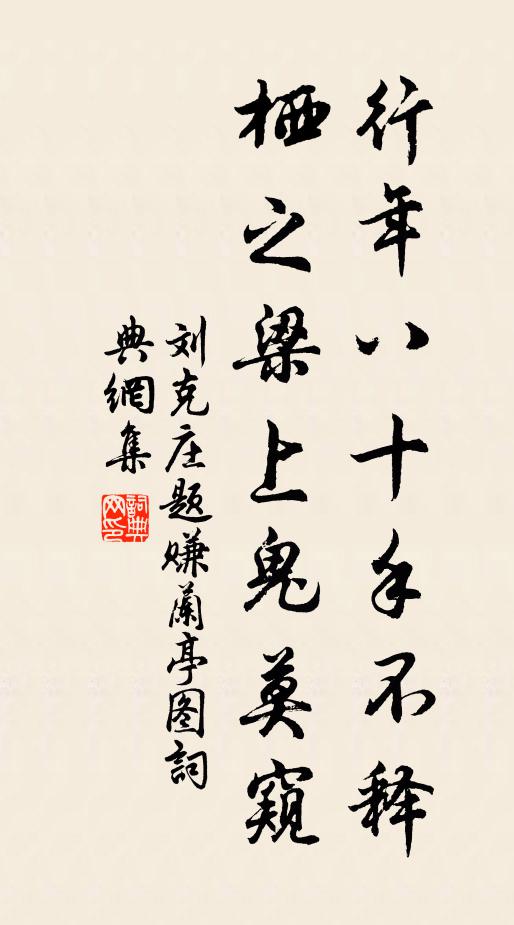 行年八十手不释
栖之梁上鬼莫窥
刘克庄题赚蘭亭图詞
典網集
詞典网印